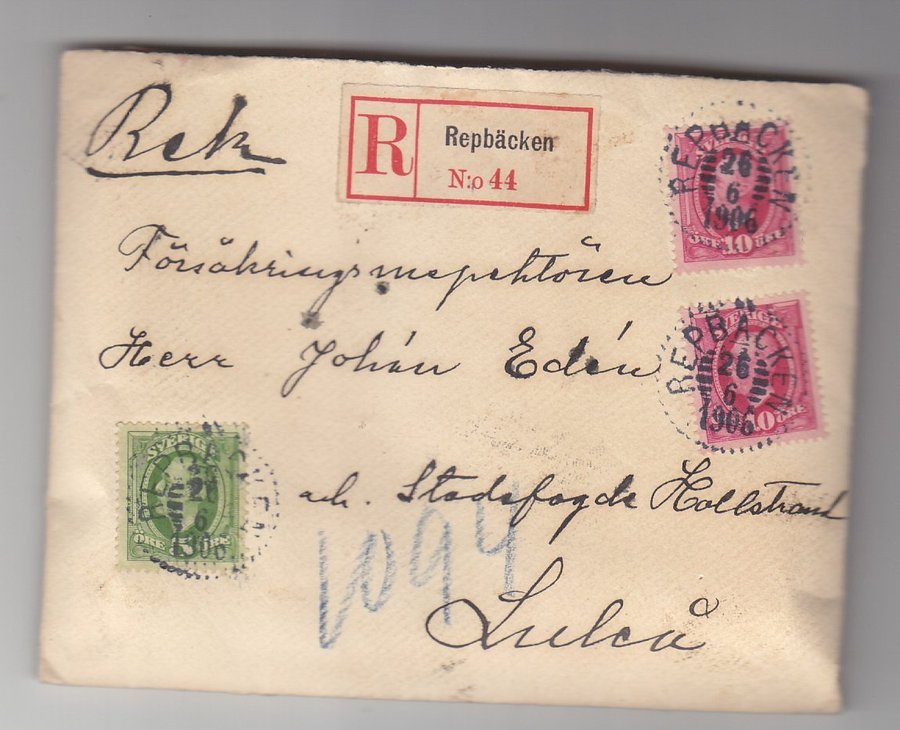 Rek
R
Repbäcken
N:o 44
REPBÄCKEN
26
6
1906
SVERIGE
ÖRE 10 ÖRE
Försäkringsinspektören
Herr Johan Edén
REPBÄCKEN
26
6
1906
SVERIGE
10 ÖRE
SVERIGE
ÖRE 5 ÖRE
REPBÄCKEN
26
6
1906
adr. Stadsfogde Hallstrand
1094
Luleå